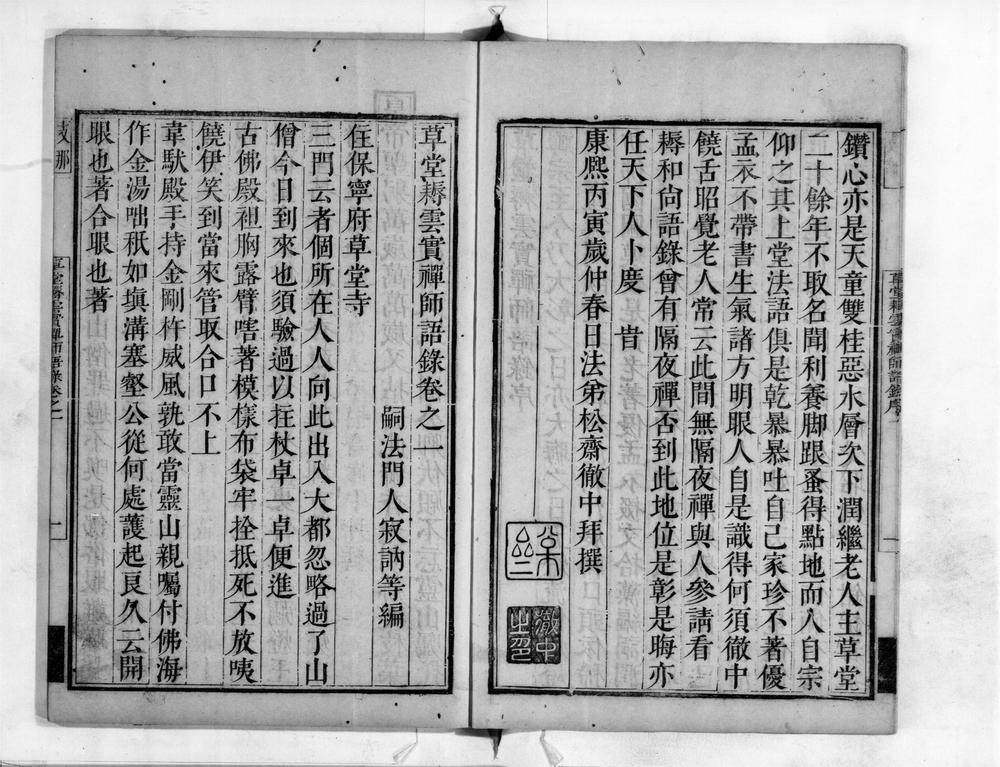 鑽心亦是天童雙桂惡水層次下潤繼老人主草堂
二十餘年不取名聞利養脚跟蚤得點地而八自宗
仰之其上堂法語俱是乾暴暴吐自己家珍不著優
孟衣不帶書生氣諸方明眼人自是識得何須徹中
饒舌昭覺老人常云此間無隔夜禪與人參請看
耨和尚語錄曾有隔夜禪否到此地位是彰是晦亦
任天下人卜度 旹
康熙丙寅歲仲春日法弟松齋徹中拜撰
徹中之印
草堂耨雲實禪師語錄序
一
草堂耨雲實禪師語錄卷之一
嗣法門人寂訥等編
住保寧府草堂寺
三門云者個所在人人向此出入大都忽略過了山
僧今日到來也須驗過以拄杖卓一卓便進
古佛殿祖胸露臂喀著模樣布袋牢拴抵死不放咦
饒伊笑到當來管取合口不上
韋馱殿手持金剛杵威風孰敢當靈山親囑付佛海
作金湯咄秖如塡溝塞壑公從何處護起良久云開
眼也著合眼也著
支那
草堂耨雲實禪師語錄卷之一
一